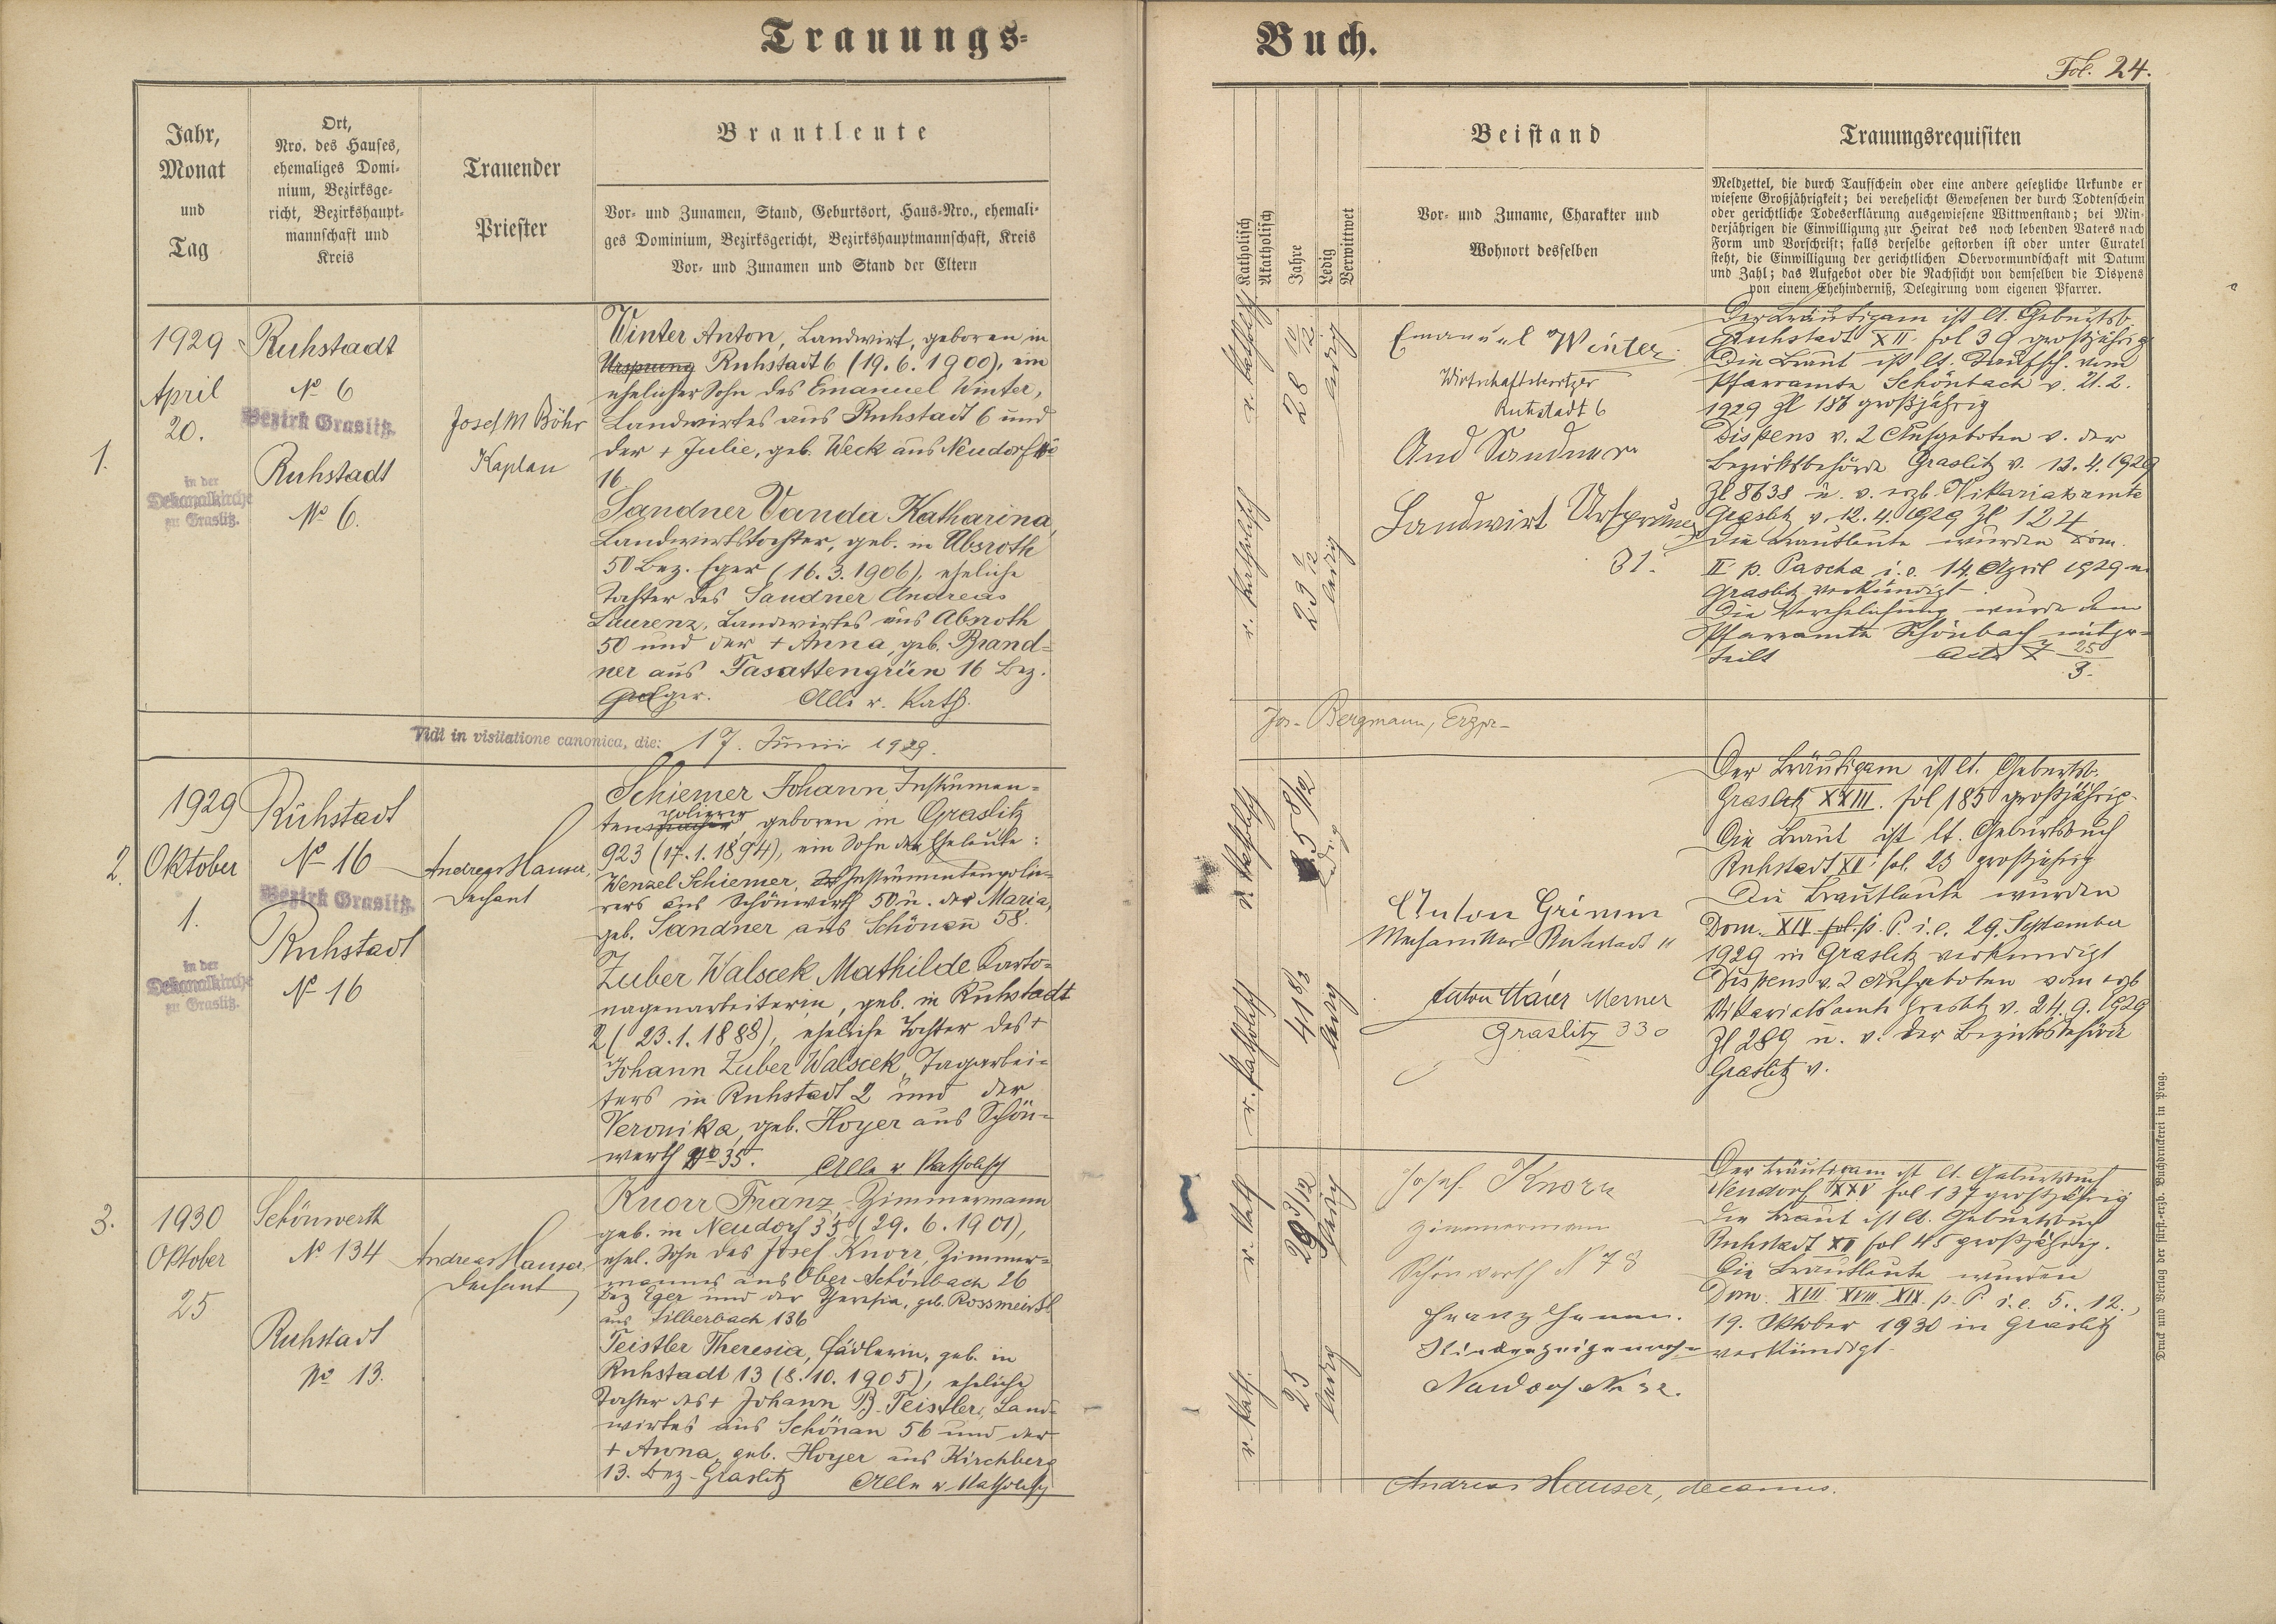 Trauungs-
Buch.
Fol. 24.
Jahr,
Monat
und
Tag
Ort,
Nro. des Hauses,
ehemaliges Domi-
nium, Bezirksge-
richt, Bezirkshaupt-
mannschaft und
Kreis
Trauender
Priester
Brautleute
Vor- und Zunamen, Stand, Geburtsort, Haus-Nro., ehemali-
ges Dominium, Bezirksgericht, Bezirkshauptmannschaft, Kreis
Vor- und Zunamen und Stand der Eltern
Katholisch
Akatholisch
Jahre
Ledig
Verwittwet
Beistand
Vor- und Zuname, Charakter und
Wohnort desselben
Trauungsrequisiten
Meldzettel, die durch Taufschein oder eine andere gesetzliche Urkunde er
wiesene Großjährigkeit; bei verehelicht Gewesenen der durch Todtenschein
oder gerichtliche Todeserklärung ausgewiesene Wittwenstand; bei Min-
derjährigen die Einwilligung zur Heirat des noch lebenden Vaters nach
Form und Vorschrift; falls derselbe gestorben ist oder unter Curatel
steht, die Einwilligung der gerichtlichen Obervormundschaft mit Datum
und Zahl; das Aufgebot oder die Nachsicht von demselben die Dispens
von einem Ehehinderniß, Delegirung vom eigenen Pfarrer.
1.
1929
April
20.
in der
Dekanalkirche
zu Graslitz.
Ruhstadt
No 6
Bezirk Graslitz.
Ruhstadt
No 6.
Josef M Böhr
Kaplan
Winter Anton, Landwirt, geboren in
Ursprung Ruhstadt 6 (19.6.1900), ein
ehelicher Sohn des Emanuel Winter,
Landwirtes aus Ruhstadt 6 und
der + Julie, geb. Weck aus Neudorf No
16
Sandner Vanda Katharina,
Landwirtstochter, geb. in Absroth
50 Bez. Eger (16.3.1906), eheliche
Tochter des Sandner Andreas
Laurenz, Landwirtes aus Absroth
50 und der + Anna, geb. Brand-
ner aus Fasattengrün 16 Bez.
Eger. Alle r. Kath.
r. katholisch
28 10/12
ledig
r. katholisch
23 1/12
ledig
Emanuel Winter
Wirtschaftsbesitzer
Ruhstadt 6
And Sandner
Landwirt Ursprung
31.
Der Bräutigam ist lt. Geburtsb.
Ruhstadt XII fol 39 großjährig
Die Braut ist lt. Taufsch. vom
Pfarramte Schönbach v. 21.2.
1929 Zl 186 großjährig
Dispens v. 2 Aufgeboten v. der
Bezirksbehörde Graslitz v. 12.4.1929
Zl 8638 u. v. erzb. Vikariatsamte
Graslitz v. 12.4.1929 Zl 124
Die Brautleute wurden Dom.
II p. Pascha i.e. 14. April 1929 in
Graslitz verkündigt.
Die Verehelichung wurde dem
Pfarramte Schönbach mitge-
teilt 25
3.
Vidi in visitatione canonica, die: 17. Junii 1929.
Jos. Bergmann, Erzpr.
2.
1929
Oktober
1.
in der
Dekanalkirche
zu Graslitz.
Ruhstadt
No 16
Bezirk Graslitz.
Ruhstadt
No 16
Andreas Hauser,
Dechant
Schiemer Johann Instrumen-
polierer
ten geboren in Graslitz
923 (17.1.1894), ein Sohn der Eheleute:
Wenzel Schiemer, Instrumentenpolie-
rers aus Schönwerth 50 u. der Maria,
geb. Sandner aus Schönau 58.
Zuber Walscek Mathilde Karto-
nagenarbeiterin, geb. in Ruhstadt
2 (23.1.1888), eheliche Tochter des +
Johann Zuber Walscek, Tagarbei-
ters in Ruhstadt 2 und der
Veronika, geb. Hoyer aus Schön-
werth No 35. Alle r katholisch
r. katholisch
35 8/12
ledig
r. katholisch
41 8/12
ledig
Anton Grimm
Mechaniker Ruhstadt 11
Anton Maier Merner
Graslitz 330
Der Bräutigam ist lt. Geburtsb.
Graslitz XXIII. fol 185 großjährig.
Die Braut ist lt. Geburtsbuch
Ruhstadt XI fol. 23 großjährig
Die Brautleute wurden
Dom. XIX p. P. i.e. 29. September
1929 in Graslitz verkündigt
Dispens v. 2 Aufgeboten vom erzb
Vikariatsamte Graslitz v. 24.9.1929
Zl 289 u. v. der Bezirksbehörde
Graslitz v.
3.
1930
Oktober
25
Schönwerth
No 134
Ruhstadt
No 13.
Andreas Hauser,
Dechant
Knorr Franz Zimmermann
geb. in Neudorf 35 (29.6.1901),
ehel. Sohn des Josef Knorr, Zimmer-
mannes aus Ober-Schönbach 26
Bez Eger und der Theresia, geb. Rossmeisl
aus Silberbach 136
Teistler Theresia, Fädlerin, geb. in
Ruhstadt 13 (8.10.1905), eheliche
Tochter des + Johann B. Teistler, Land-
wirtes aus Schönau 56 und der
+ Anna, geb. Hoyer aus Kirchberg
13. Bez. Graslitz Alle r katholisch
r. kath
29 3/12
ledig
r. kath.
25
ledig
Josef Knorr
Zimmermann
Schönwerth N 78
Franz Hamm.
Neudorf No 32.
Der Bräutigam ist lt. Geburtsbuch
Neudorf XXV fol 137 großjährig
Die Braut ist lt. Geburtsbuch
Ruhstadt XII fol 45 großjährig.
Die Brautleute wurden
Dom. XVII XVIII XIX p. P. i.e. 5., 12.,
19. Oktober 1930 in Graslitz
verkündigt.
Andreas Hauser, decanus.
Druck und Verlag der fürst-erzb. Buchdruckerei in Prag.